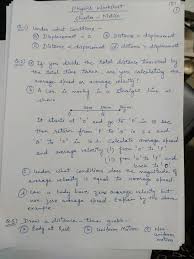 Physics Worksheet
Chapter - Motion
Q.1) Under what conditions -
(a) Displacement = 0 (b) Distance = displacement
(c) Distance > displacement (d) distance < displacement
Q.2) (a) If you divide the total distance travelled by
the total time taken, are you calculating
the average speed or average velocity?
(b) A car is moving in a straight line as
shown
It starts at 'a' and
then return from
Calculate average speed
and average velocity (i) from
(c) Under what conditions does the magnitude of
average velocity is equal to average speed
(d) Can a body have zero average velocity but
not zero average speed. Explain by the above
example.
Q.3) Draw a distance - time graph -
(a) Body at rest (b) Uniform Motion (c) Non
uniform
motion